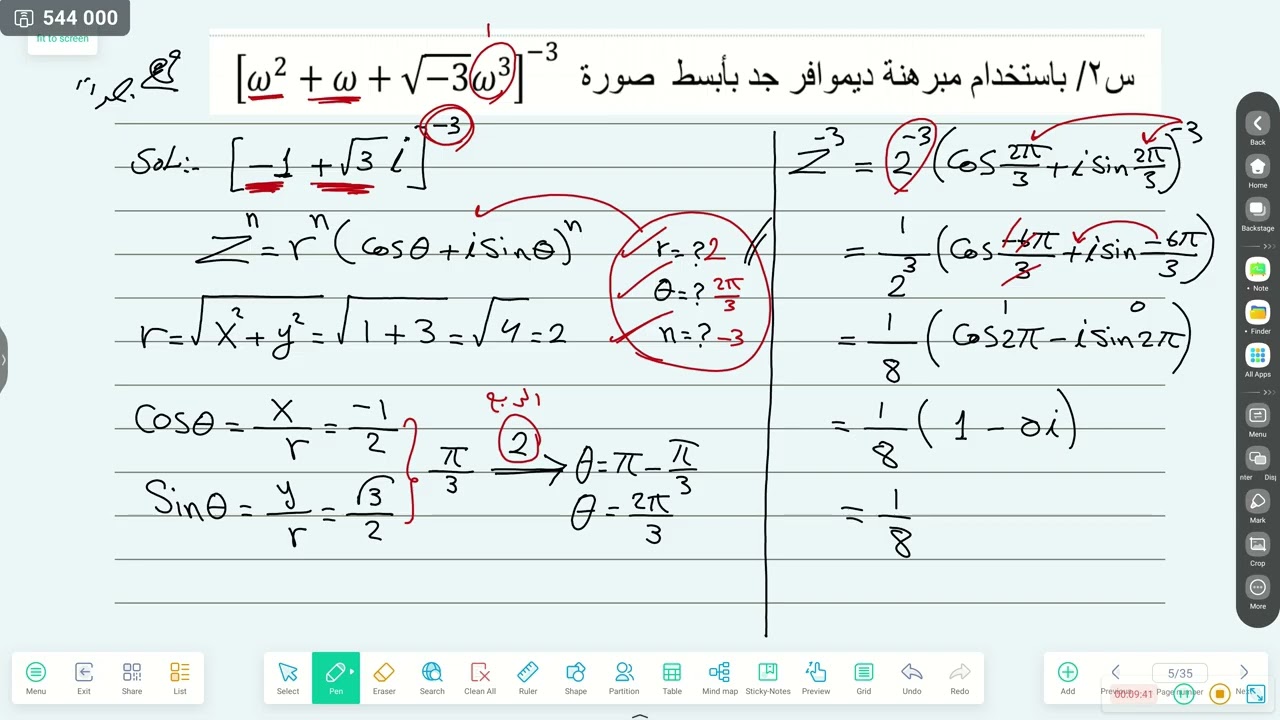 544 000
fit to screen
س٢/ باستخدام مبرهنة ديموافر جد بأبسط صورة [ω² + ω + √−3ω³]⁻³
1
Sol:- [−1 + √3 i]⁻³
Zⁿ = rⁿ (Cosθ + i Sinθ)ⁿ
r = ? 2
θ = ? 2π/3
n = ? −3
r = √x² + y² = √1 + 3 = √4 = 2
Cosθ = x/r = −1/2
Sinθ = y/r = √3/2
π/3
الربع
2
θ = π − π/3
θ = 2π/3
Z⁻³ = 2⁻³ (Cos 2π/3 + i Sin 2π/3)⁻³
= 1/2³ (Cos −6π/3 + i Sin −6π/3)
1 0
= 1/8 (Cos2π − i Sin 2π)
= 1/8 (1 − 0i)
= 1/8
Back
Home
Backstage
Note
Finder
All Apps
Menu
nter Disp
Mark
Crop
More
Menu Exit Share List
Select Pen Eraser Search Clean All Ruler Shape Partition Table Mind map Sticky-Notes Preview Grid Undo Redo
5/35
Add Previous Page number Next
00:09:41